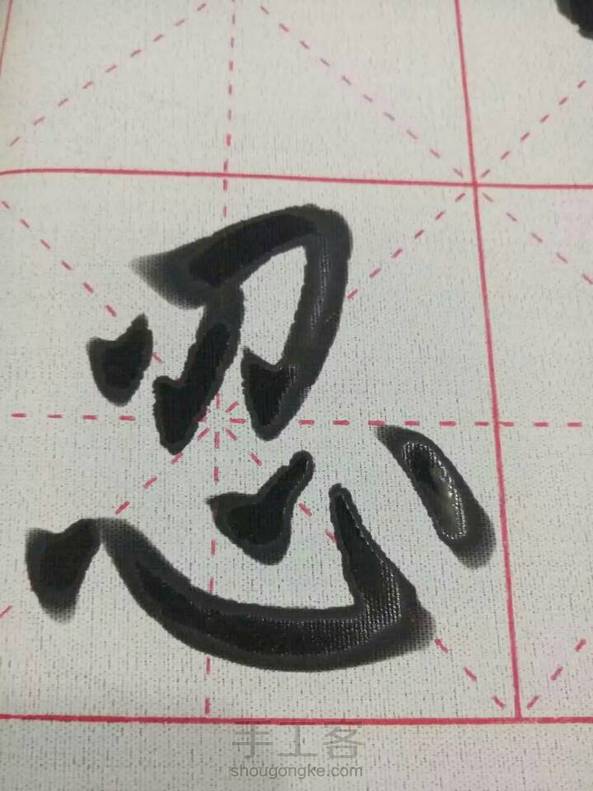 忍
手工客
shougongke.com